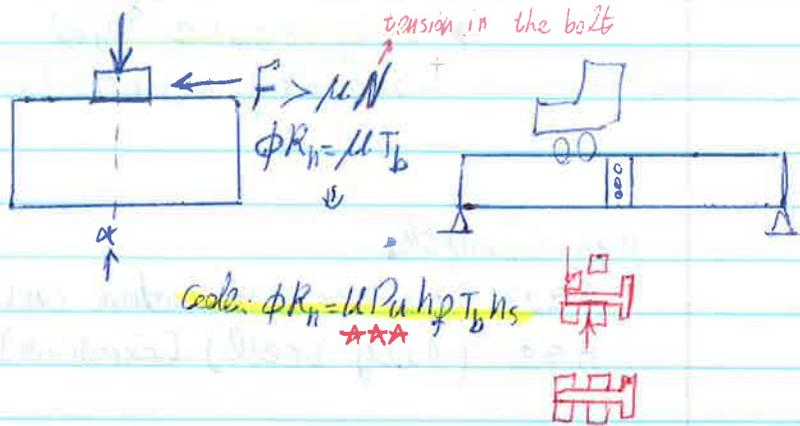 tension in the bolt
F > μN
φRn = μTb
α
code: φRn = μ Du hf Tb ns